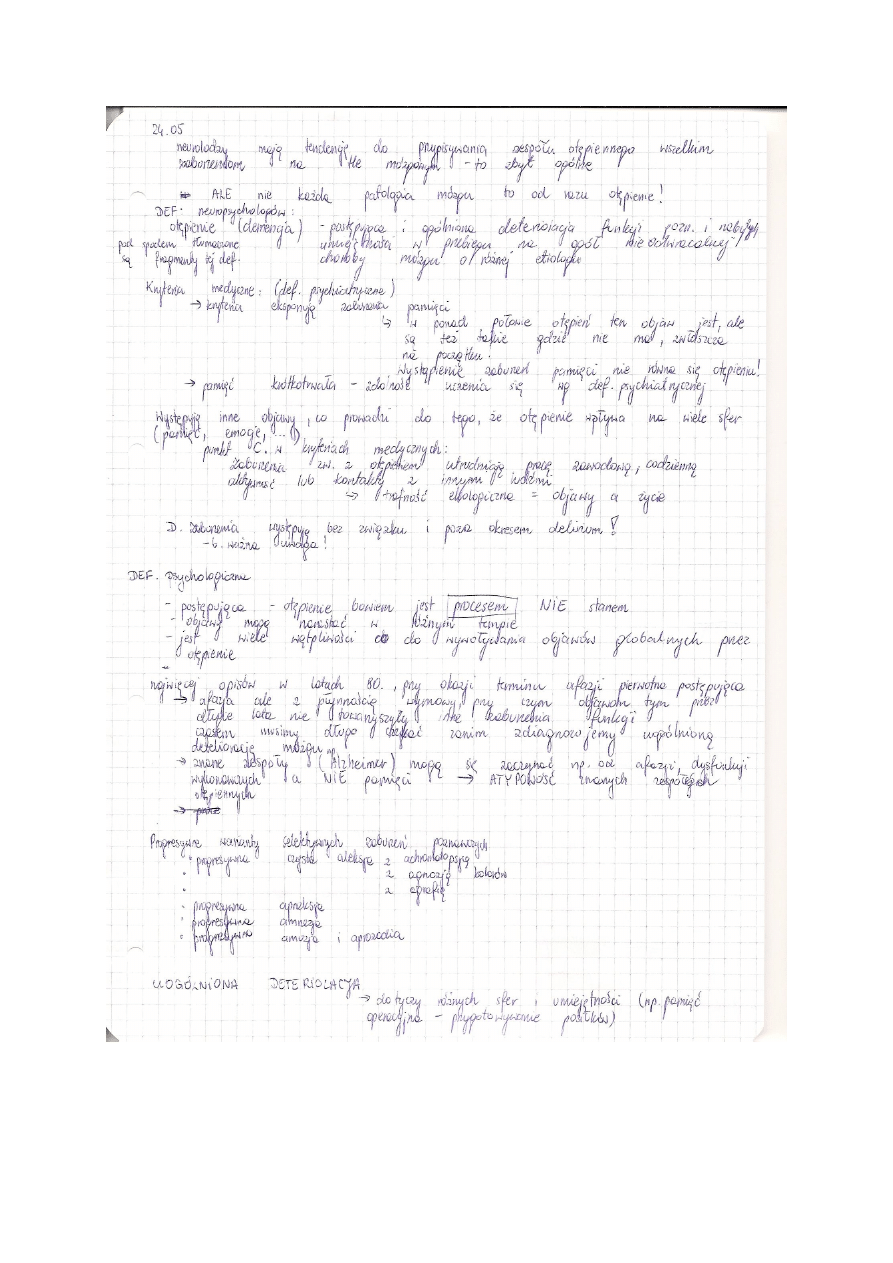 24.05
neurolodzy mają tendencję do przypisywania zespołu otępiennego wszelkim
zaburzeniom na tle mózgowym - to zbyt ogólne
ALE nie każda patologia mózgu to od razu otępienie!
DEF: neuropsychologów:
otępienie (demencja) - postępująca i ogólniona deterioracja funkcji pozn. i nabytych
pod spodem tłumaczone umiejętności w przebiegu na ogół nieodwracalnej
są fragmenty tej def. choroby mózgu o różnej etiologii
Kryteria medyczne: (def. psychiatryczne)
→ kryteria eksponują zaburzenia pamięci
↳ w ponad połowie otępień ten objaw jest, ale
są też takie gdzie nie ma, zwłaszcza
na początku.
Wystąpienie zaburzeń pamięci nie równa się otępieniu!
→ pamięć krótkotrwała - zdolność uczenia się wg def. psychiatrycznej
Występują inne objawy, co prowadzi do tego, że otępienie wpływa na wiele sfer
(pamięć, emocje, ...)
punkt C. w kryteriach medycznych:
zaburzenia zw. z otępieniem utrudniają pracę zawodową, codzienną
aktywność lub kontakty z innymi ludźmi
↳ trafność ekologiczna = objawy a życie
D. zaburzenia występują bez związku i poza okresem delirium!
- b. ważna uwaga!
DEF. psychologiczna
- postępująca - otępienie bowiem jest procesem NIE stanem
- objawy mogą narastać w różnym tempie
- jest wiele wątpliwości co do wywoływania objawów globalnych przez
otępienie
najwięcej opisów w latach 80., przy okazji terminu afazji pierwotna postępująca
→ afazja ale z płynnością wymowy, przy czym objawom tym przez
długie lata nie towarzyszyły inne zaburzenia funkcji
czasem musimy długo czekać zanim zdiagnozujemy uogólnioną
deteriorację mózgu
→ znane zespoły (np. Alzheimer) mogą się zaczynać np. od afazji, dysfunkcji
wykonawczych a NIE pamięci → ATYPOWOŚĆ znanych zespołach
otępiennych
Progresywne warianty selektywnych zaburzeń poznawczych
• progresywna czysta aleksja z achromatopsją
• z agnozją kolorów
• z agrafią
• progresywna apraksja
• progresywna amnezja
• progresywna amuzja i aprozodia
UOGÓLNIONA DETERIOLACJA
→ dotyczy różnych sfer i umiejętności (np. pamięć
operacyjna - przygotowywanie posiłków)